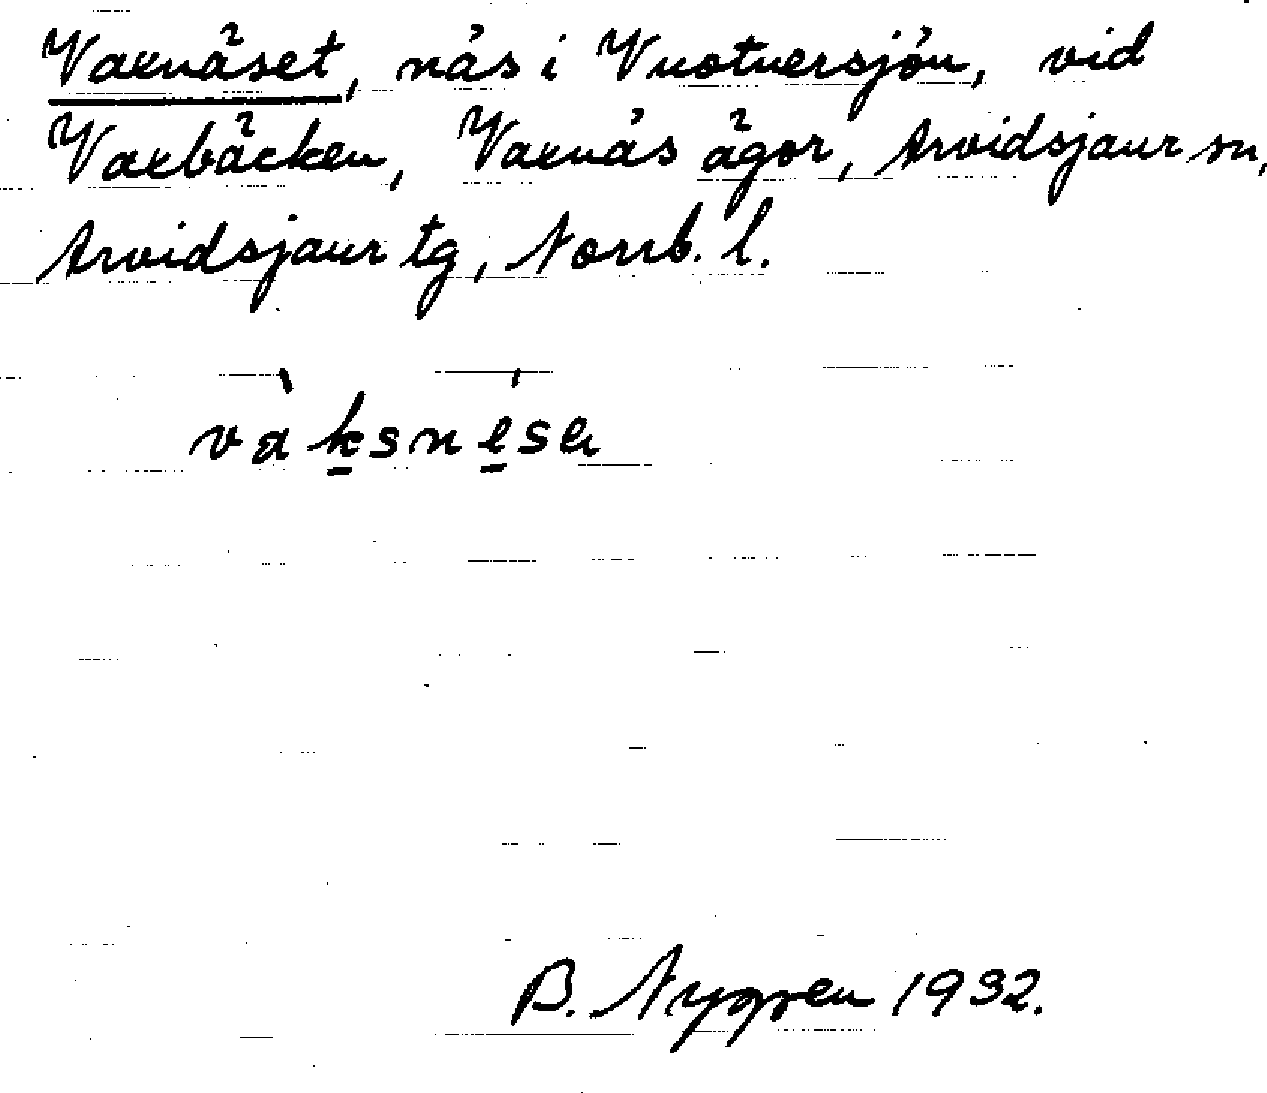 Vaxnäset, näs i Vuotnersjön, vid
Vaxbäcken, Vaxnäs ägor, Arvidsjaur sn,
Arvidsjaur tg, Norrb. l.
B. Nygren 1932.